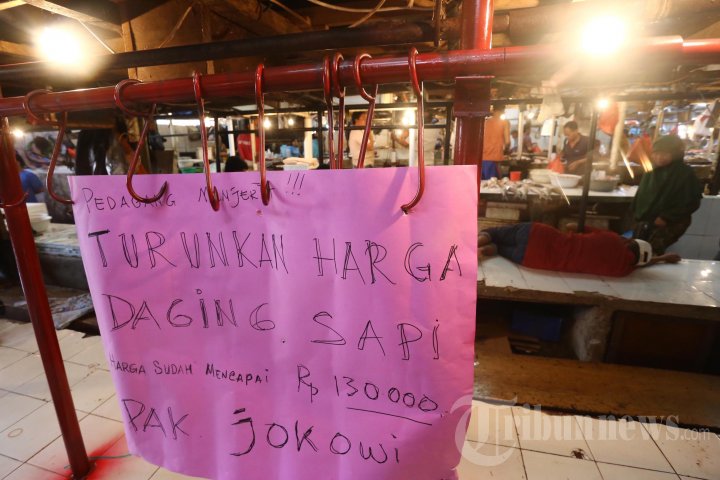 PEDAGANG MENJERIT !!!
TURUNKAN HARGA
DAGING SAPI
HARGA SUDAH MENCAPAI Rp 130000
PAK JOKOWI
Tribunnews.com